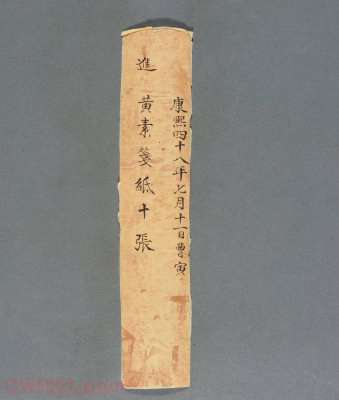 康熙四十八年七月十一日曹寅
進 黃素箋紙十張